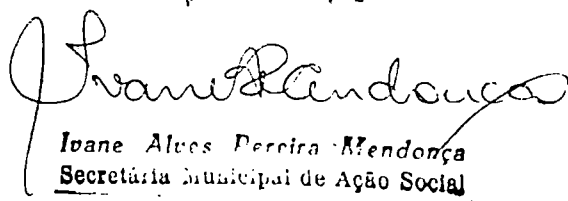 Ivane Mendonça
Ivane Alves Pereira Mendonça
Secretária Municipal de Ação Social